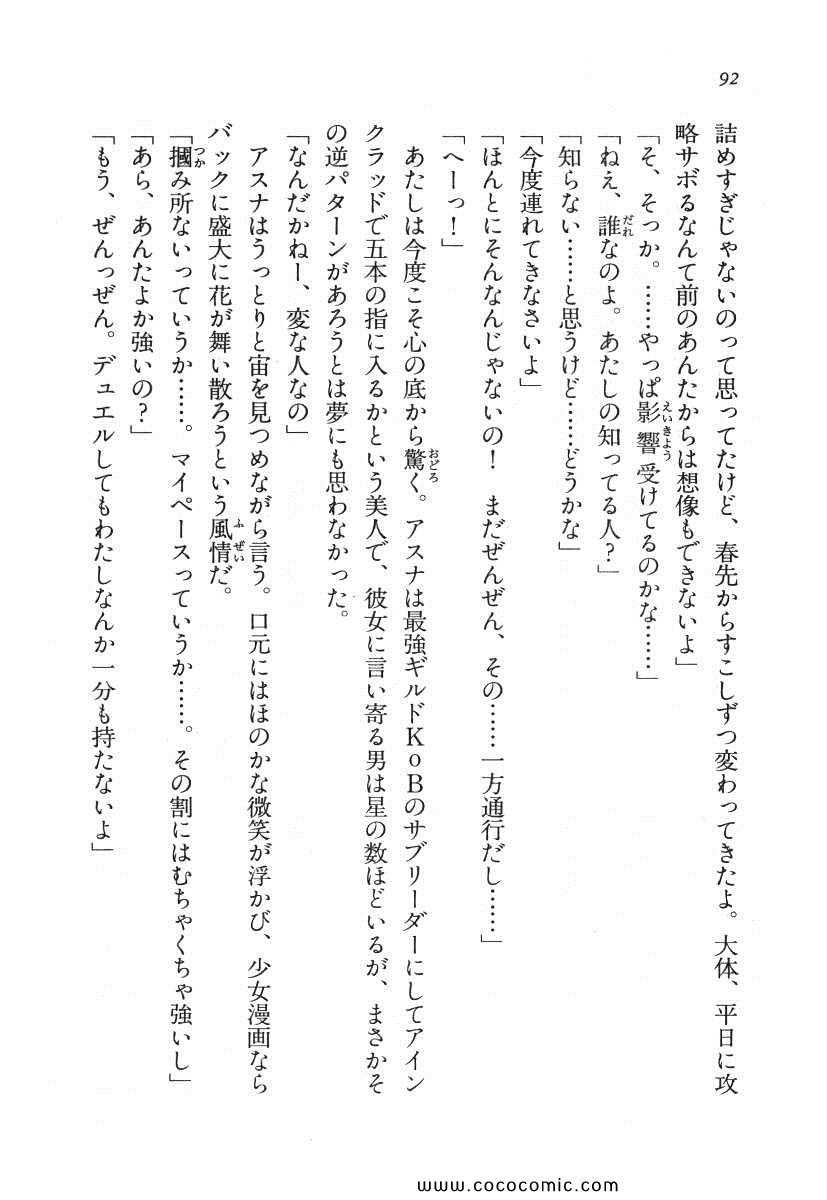 92
詰めすぎじゃないのって思ってたけど、春先からすこしずつ変わってきたよ。大体、平日に攻
略サボるなんて前のあんたからは想像もできないよ」
「そ、そっか。……やっぱ影響受けてるのかな……」
「ねえ、誰なのよ。あたしの知ってる人？」
「知らない……と思うけど……どうかな」
「今度連れてきなさいよ」
「ほんとにそんなんじゃないの！　まだぜんぜん、その……一方通行だし……」
「へーっ！」
　あたしは今度こそ心の底から驚く。アスナは最強ギルドKoBのサブリーダーにしてアイン
クラッドで五本の指に入るかという美人で、彼女に言い寄る男は星の数ほどいるが、まさかそ
の逆パターンがあろうとは夢にも思わなかった。
「なんだかねー、変な人なの」
　アスナはうっとりと宙を見つめながら言う。口元にはほのかな微笑が浮かび、少女漫画なら
バックに盛大に花が舞い散ろうという風情だ。
「摑み所ないっていうか……。マイペースっていうか……。その割にはむちゃくちゃ強いし」
「あら、あんたよか強いの？」
「もう、ぜんっぜん。デュエルしてもわたしなんか一分も持たないよ」
www.cococomic.com